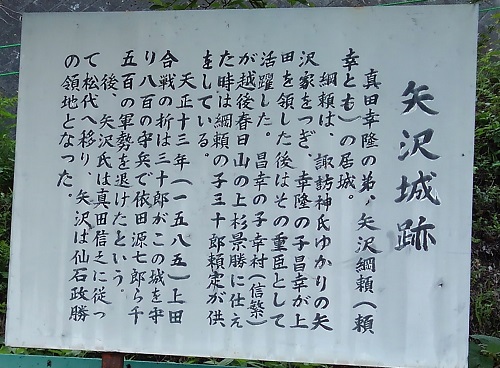 矢沢城跡
真田幸隆の弟，矢沢綱頼（頼
幸とも）の居城。
綱頼は、諏訪神氏ゆかりの矢
沢家をつぎ、幸隆の子昌幸が上
田を領した後はその重臣として
活躍した。昌幸の子幸村（信繁）
が越後春日山の上杉景勝に仕え
た時は綱頼の子三十郎頼定が供
をしている。
天正十三年（一五八五）上田
合戦の折は三十郎がこの城を守
り八百の守兵で依田源七郎ら千
五百の軍勢を退けたという。
後、矢沢氏は真田信之に従っ
て松代へ移り、矢沢は仙石政勝
の領地となった。